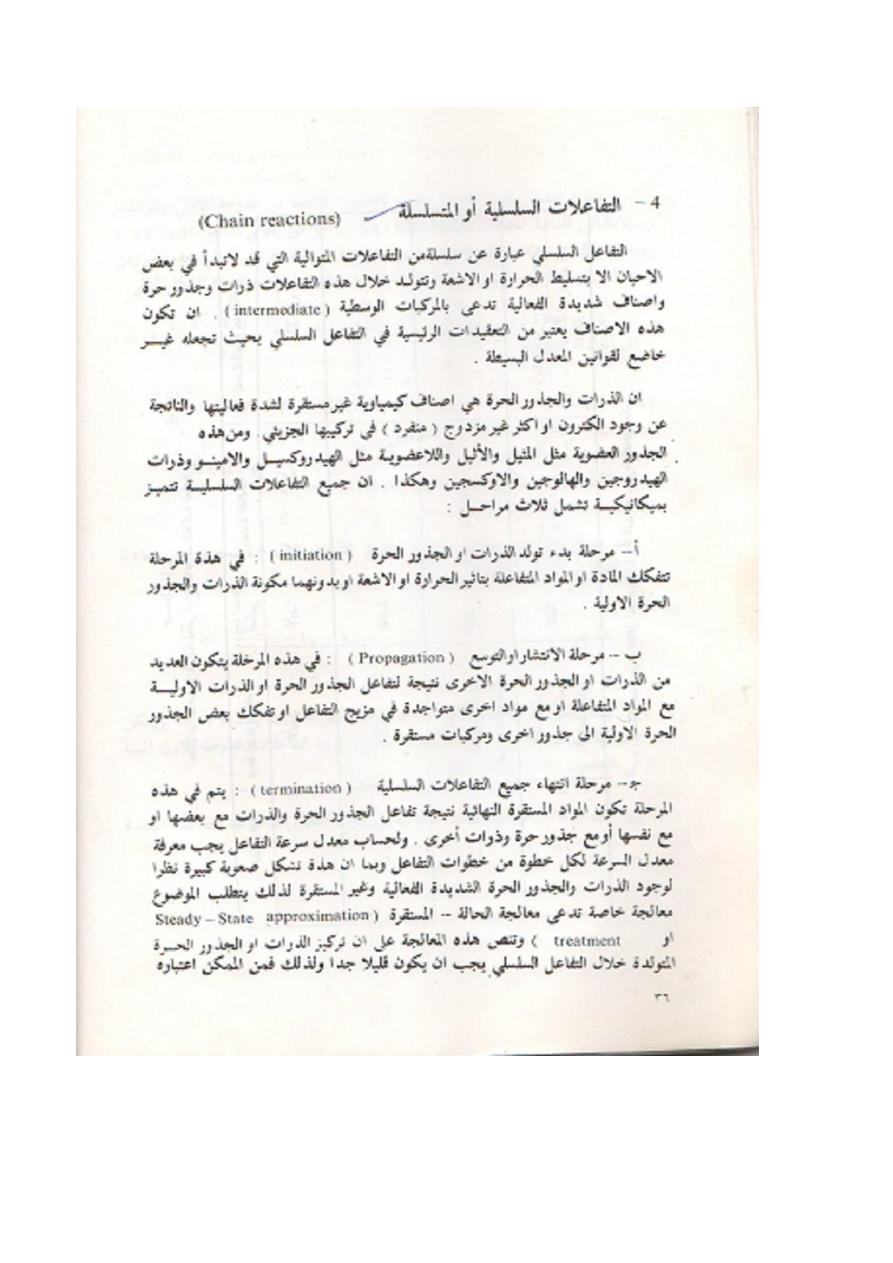 4 - التفاعلات السلسلية أو المتسلسلة (Chain reactions)
التفاعل السلسلي عبارة عن سلسلة من التفاعلات المتوالية التي قد لاتبدأ في بعض
الاحيان الا بتسليط الحرارة او الاشعة وتتولد خلال هذه التفاعلات ذرات وجذور حرة
واصناف شديدة الفعالية تدعى بالمركبات الوسطية (intermediate) . ان تكون
هذه الاصناف يعتبر من التعقيدات الرئيسية في التفاعل السلسلي بحيث تجعله غيــر
خاضع لقوانين المعدل البسيطة .
ان الذرات والجذور الحرة هي اصناف كيمياوية غير مستقرة لشدة فعاليتها والناتجة
عن وجود الكترون او اكثر غير مزدوج ( منفرد ) في تركيبها الجزيئي . ومن هذه
الجذور العضوية مثل المثيل والأثيل واللاعضوية مثل الهيدروكسيــل والامينــو وذرات
الهيدروجين والهالوجين والاوكسجين وهكذا . ان جميع التفاعلات السلسليــة تتميز
بميكانيكيــة تشمل ثلاث مراحــل :
أ-- مرحلة بدء تولد الذرات او الجذور الحرة (initiation) : في هذة المرحلة
تتفكك المادة او المواد المتفاعلة بتاثير الحرارة او الاشعة او بدونهما مكونة الذرات والجذور
الحرة الاولية .
ب -- مرحلة الانتشار او التوسع (Propagation) : في هذه المرحلة يتكون العديد
من الذرات او الجذور الحرة الاخرى نتيجة لتفاعل الجذور الحرة او الذرات الاوليــة
مع المواد المتفاعلة او مع مواد اخرى متواجدة في مزيج التفاعل او تفكك بعض الجذور
الحرة الاولية الى جذور اخرى ومركبات مستقرة .
جـ-- مرحلة انتهاء جميع التفاعلات السلسلية (termination) : يتم في هذه
المرحلة تكون المواد المستقرة النهائية نتيجة تفاعل الجذور الحرة والذرات مع بعضها او
مع نفسها أو مع جذور حرة وذرات أخرى . ولحساب معدل سرعة التفاعل يجب معرفة
معدل السرعة لكل خطوة من خطوات التفاعل وبما ان هذة تشكل صعوبة كبيرة نظرا
لوجود الذرات والجذور الحرة الشديدة الفعالية وغير المستقرة لذلك يتطلب الموضوع
معالجة خاصة تدعى معالجة الحالة -- المستقرة (Steady-State approximation
او treatment ) وتنص هذه المعالجة على ان تركيز الذرات او الجذور الحــرة
المتولدة خلال التفاعل السلسلي يجب ان يكون قليلا جدا ولذلك فمن الممكن اعتباره
٣٦